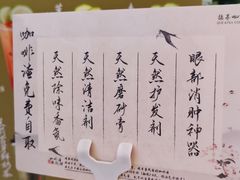 眼部消肿神器
天然护发剂
天然磨砂膏
天然清洁剂
天然除味香氛
咖啡渣免费自取